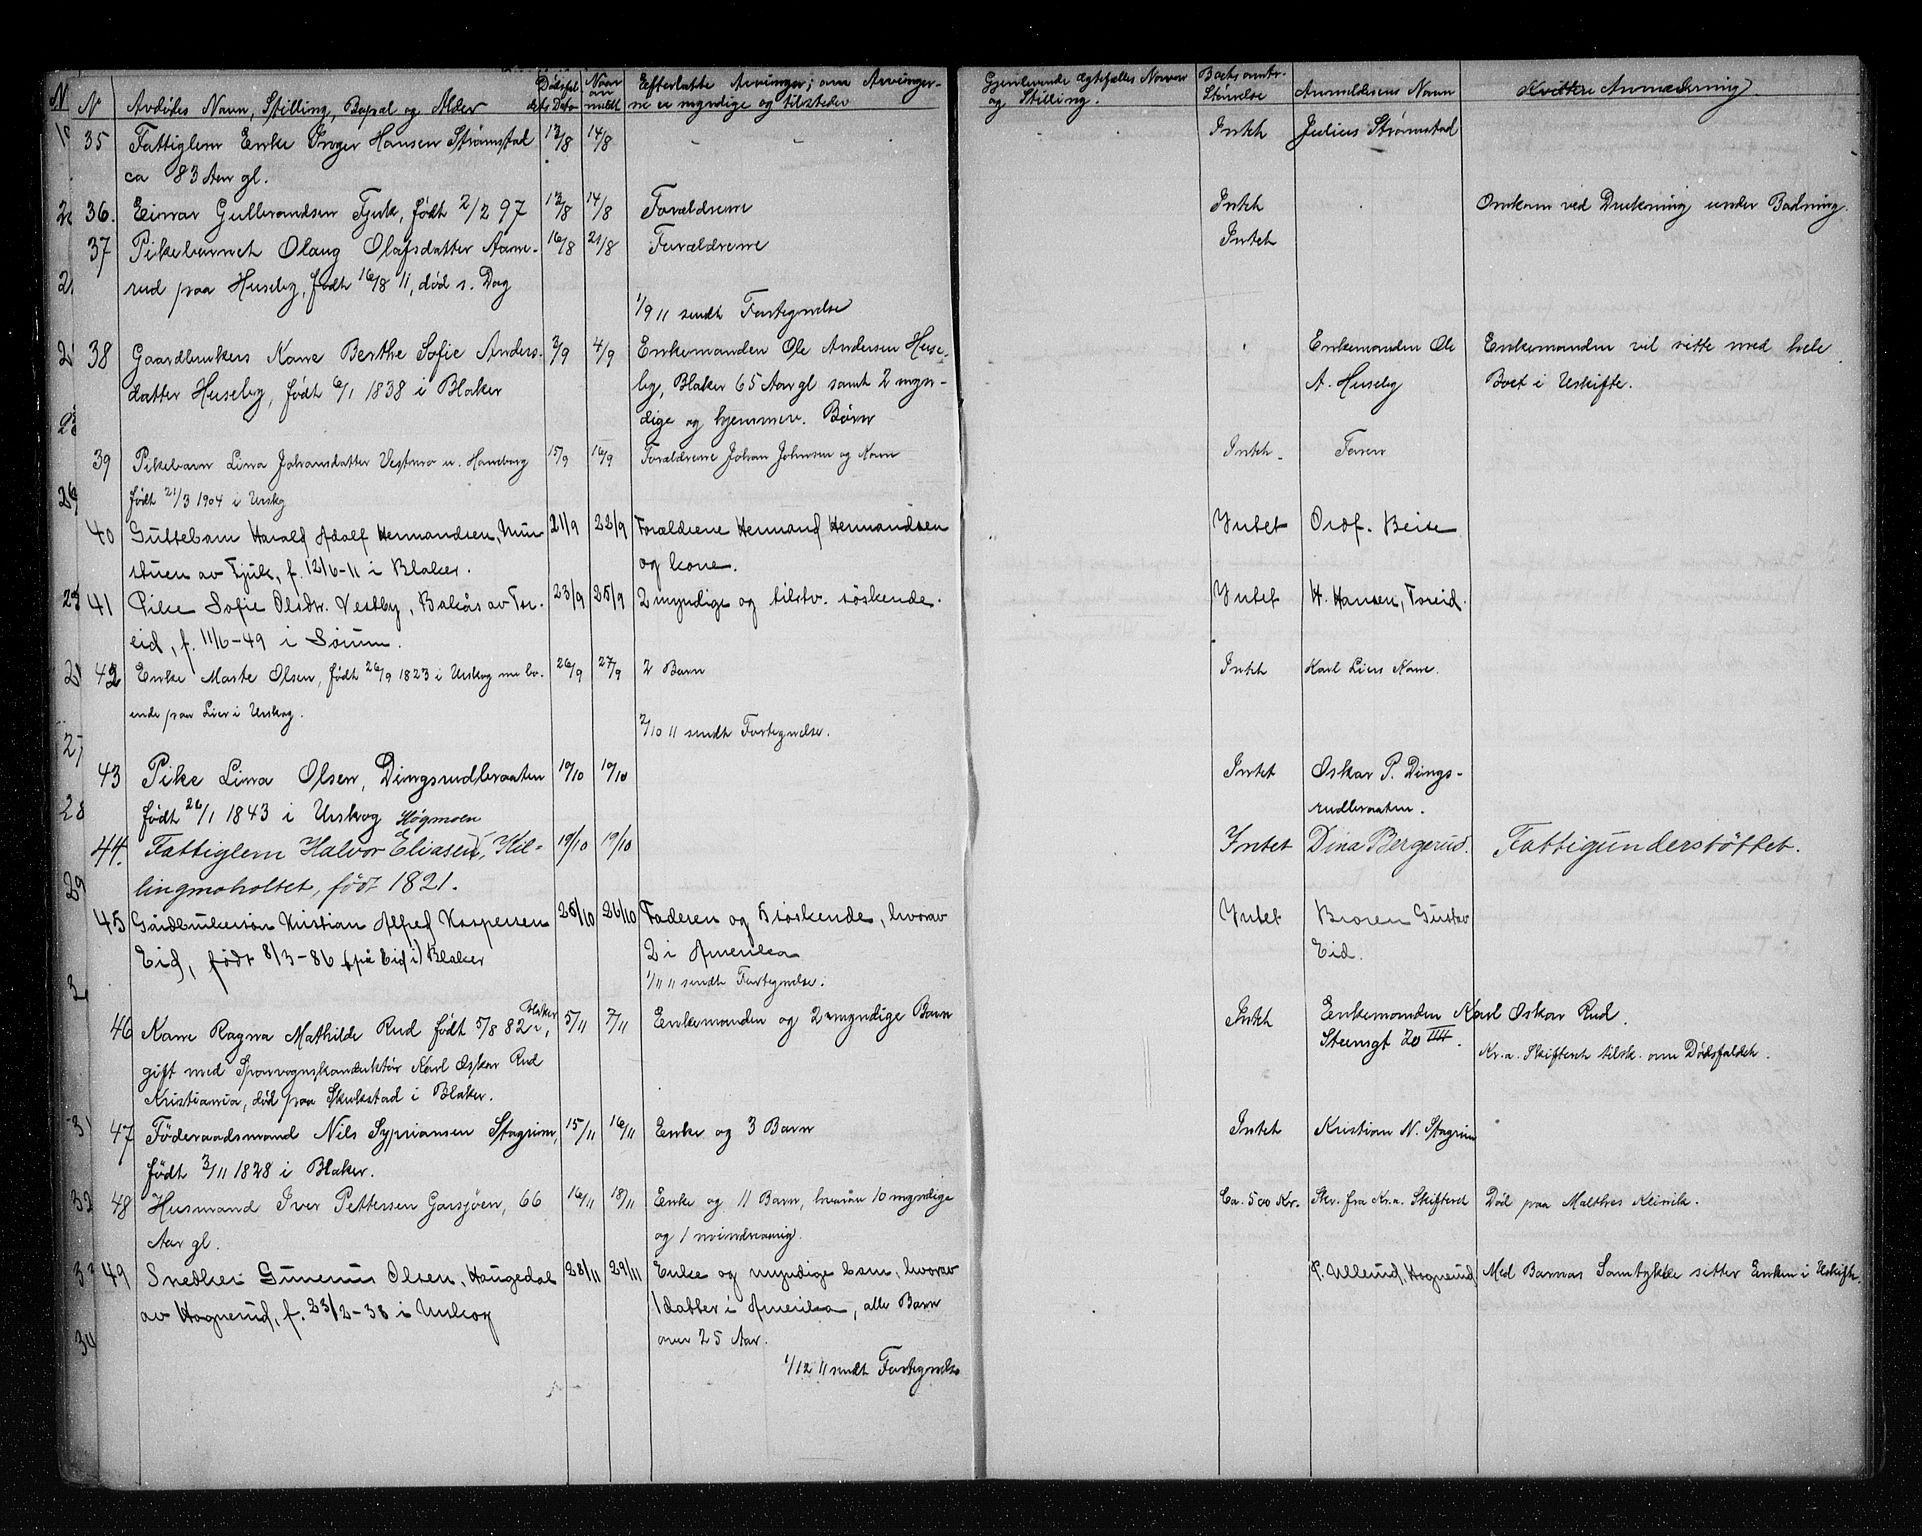 N N Avdødes Navn, Stilling, Bopæl og Alder Dødsfaldets Dato Naar anmeldt Efterlatte Arvinger; om Arvingerne er myndige og tilstede Gjenlevende Ægtefælles Navn og Stilling. Boets omtr. Størrelse Anmelderens Navn Anmerkning
35 Fattiglem Enke Inger Hansen Strømstad 12/8 14/8 - - Intet Julius Strømstad
ca 83 Aar gl.
36. Einar Gulbrandsen Tjuk, født 2/2 97 12/8 14/8 Forældrene Intet Omkom ved Drukning under Badning.
37 Pikebarnet Olaug Olafsdatter Aame- 16/8 21/8 Forældrene Intet
rud paa Huseby, født 16/8 11, død s. Dag
1/9 11 sendt Fortegnelse
38 Gaardbrukers Kone Berthe Sofie Anders- 2/9 4/9 Enkemanden Ole Andersen Huse- Enkemanden Ole Enkemanden vil sitte med hele
datter Huseby, født 6/1 1838 i Blaker by, Blaker 65 Aar gl samt 2 myn- A. Huseby Boet i Uskifte.
dige og hjemmev. Børn
39 Pikebarn Lina Johansdatter Vestmo u. Haneborg 15/9 16/9 Forældrene Johan Johnsen og Kone Intet. Faren
født 21/3 1904 i Urskog
40 Guttebarn Harald Adolf Hermandsen, Mur- 21/9 22/9 Forældrene Hermand Hermandsen Intet Ordf. Beise
stuen av Tjuk, f. 12/6-11 i Blaker. og kone.
41 Pike Sofie Olsdtr. Vestby, Bakås av Tor- 23/9 25/9 2 myndige og tilstv. søskende. Intet H. Hansen, Toreid.
eid, f. 11/6-49 i Sørum.
42 Enke Marte Olsen, født 26/9 1823 i Urskog nu bo- 26/9 27/9 2 Barn Intet Karl Liers Kone.
ende paa Lier i Urskog.
2/10 11 sendt Fortegnelse.
43 Pike Lina Olsen, Dingsrudbraaten 19/10 19/10 Intet Oskar P. Dings-
født 26/1 1843 i Urskog rudbraaten.
Høgmoen
44. Fattiglem Halvor Eliasen, Kil- 19/10 19/10 Intet Dina Bergerud. Fattigunderstöttet.
lingmoholtet, född 1821.
45 Gårdbrukersøn Kristian Alfred Kaspersen 25/10 26/10 Faderen og 5 søskende, hvorav Intet Broren Gustav
Eid, født 8/3-86 (på Eid i) Blaker 2 i Amerika Eid.
1/11 11 sendt Fortegnelse.
46 Kone Ragna Mathilde Rud født 5/8 82 i Blaker, 5/11 7/11 Enkemanden og 2 myndige Barn Intet Enkemanden Karl Oskar Rud.
gift med Sporvognskonduktør Karl Oskar Rud Steensgt 20 III. Kr.a. Skifteret tilsk. om Dødsfaldet.
Kristiania, død paa Skulstad i Blaker.
47 Föderaadsmand Nils Sypriansen Stagrim, 15/11 16/11 Enke og 3 Barn Intet Kristian N. Stagrim
født 3/11 1828 i Blaker.
48 Husmand Iver Pettersen Garsjøen, 66 16/11 18/11 Enke og 11 Barn, hvorav 10 myndige Ca. 500 Kr. Skr. fra Kr.a. Skifteret Död paa Malthes Klinik.
Aar gl. og 1 mindreaarig.
49 Snedker Gunerius Olsen, Haugedal 28/11 29/11 Enke og myndige barn, hvorav P. Ullerud, Hognerud Med Barnas Samtykke sitter Enken i Uskifte.
av Hognerud, f. 23/2-38 i Urskog 1 datter i Amerika, alle Barn
over 25 Aar.
1/12 11 sendt Fortegnelse